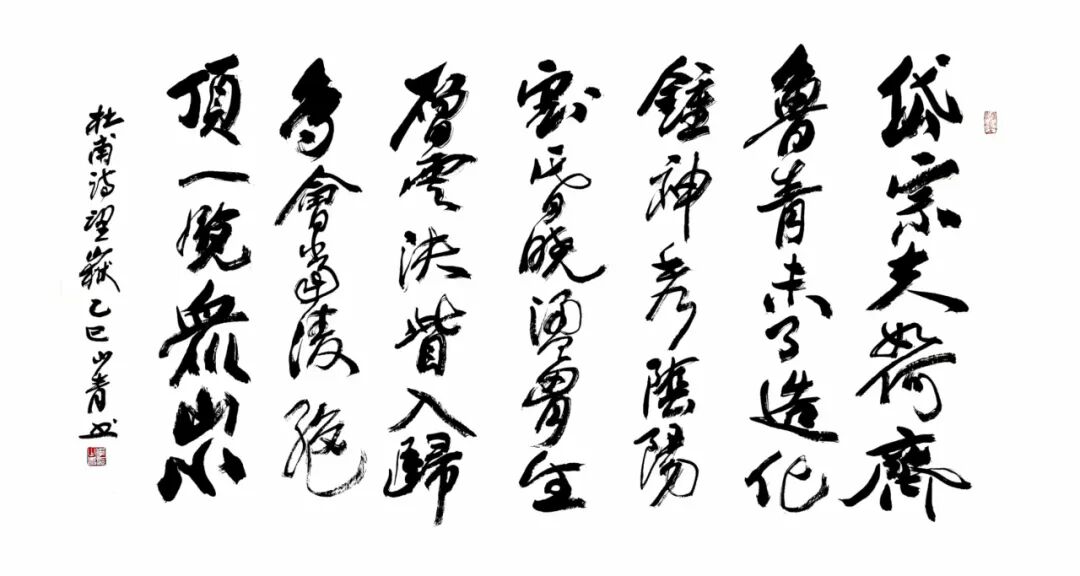 岱宗夫如何齊
魯青未了造化
鍾神秀陰陽
割昏曉盪胷生
層雲決眥入歸
鳥會當凌絕
頂一覽衆山小
杜甫詩望嶽乙巳山青書